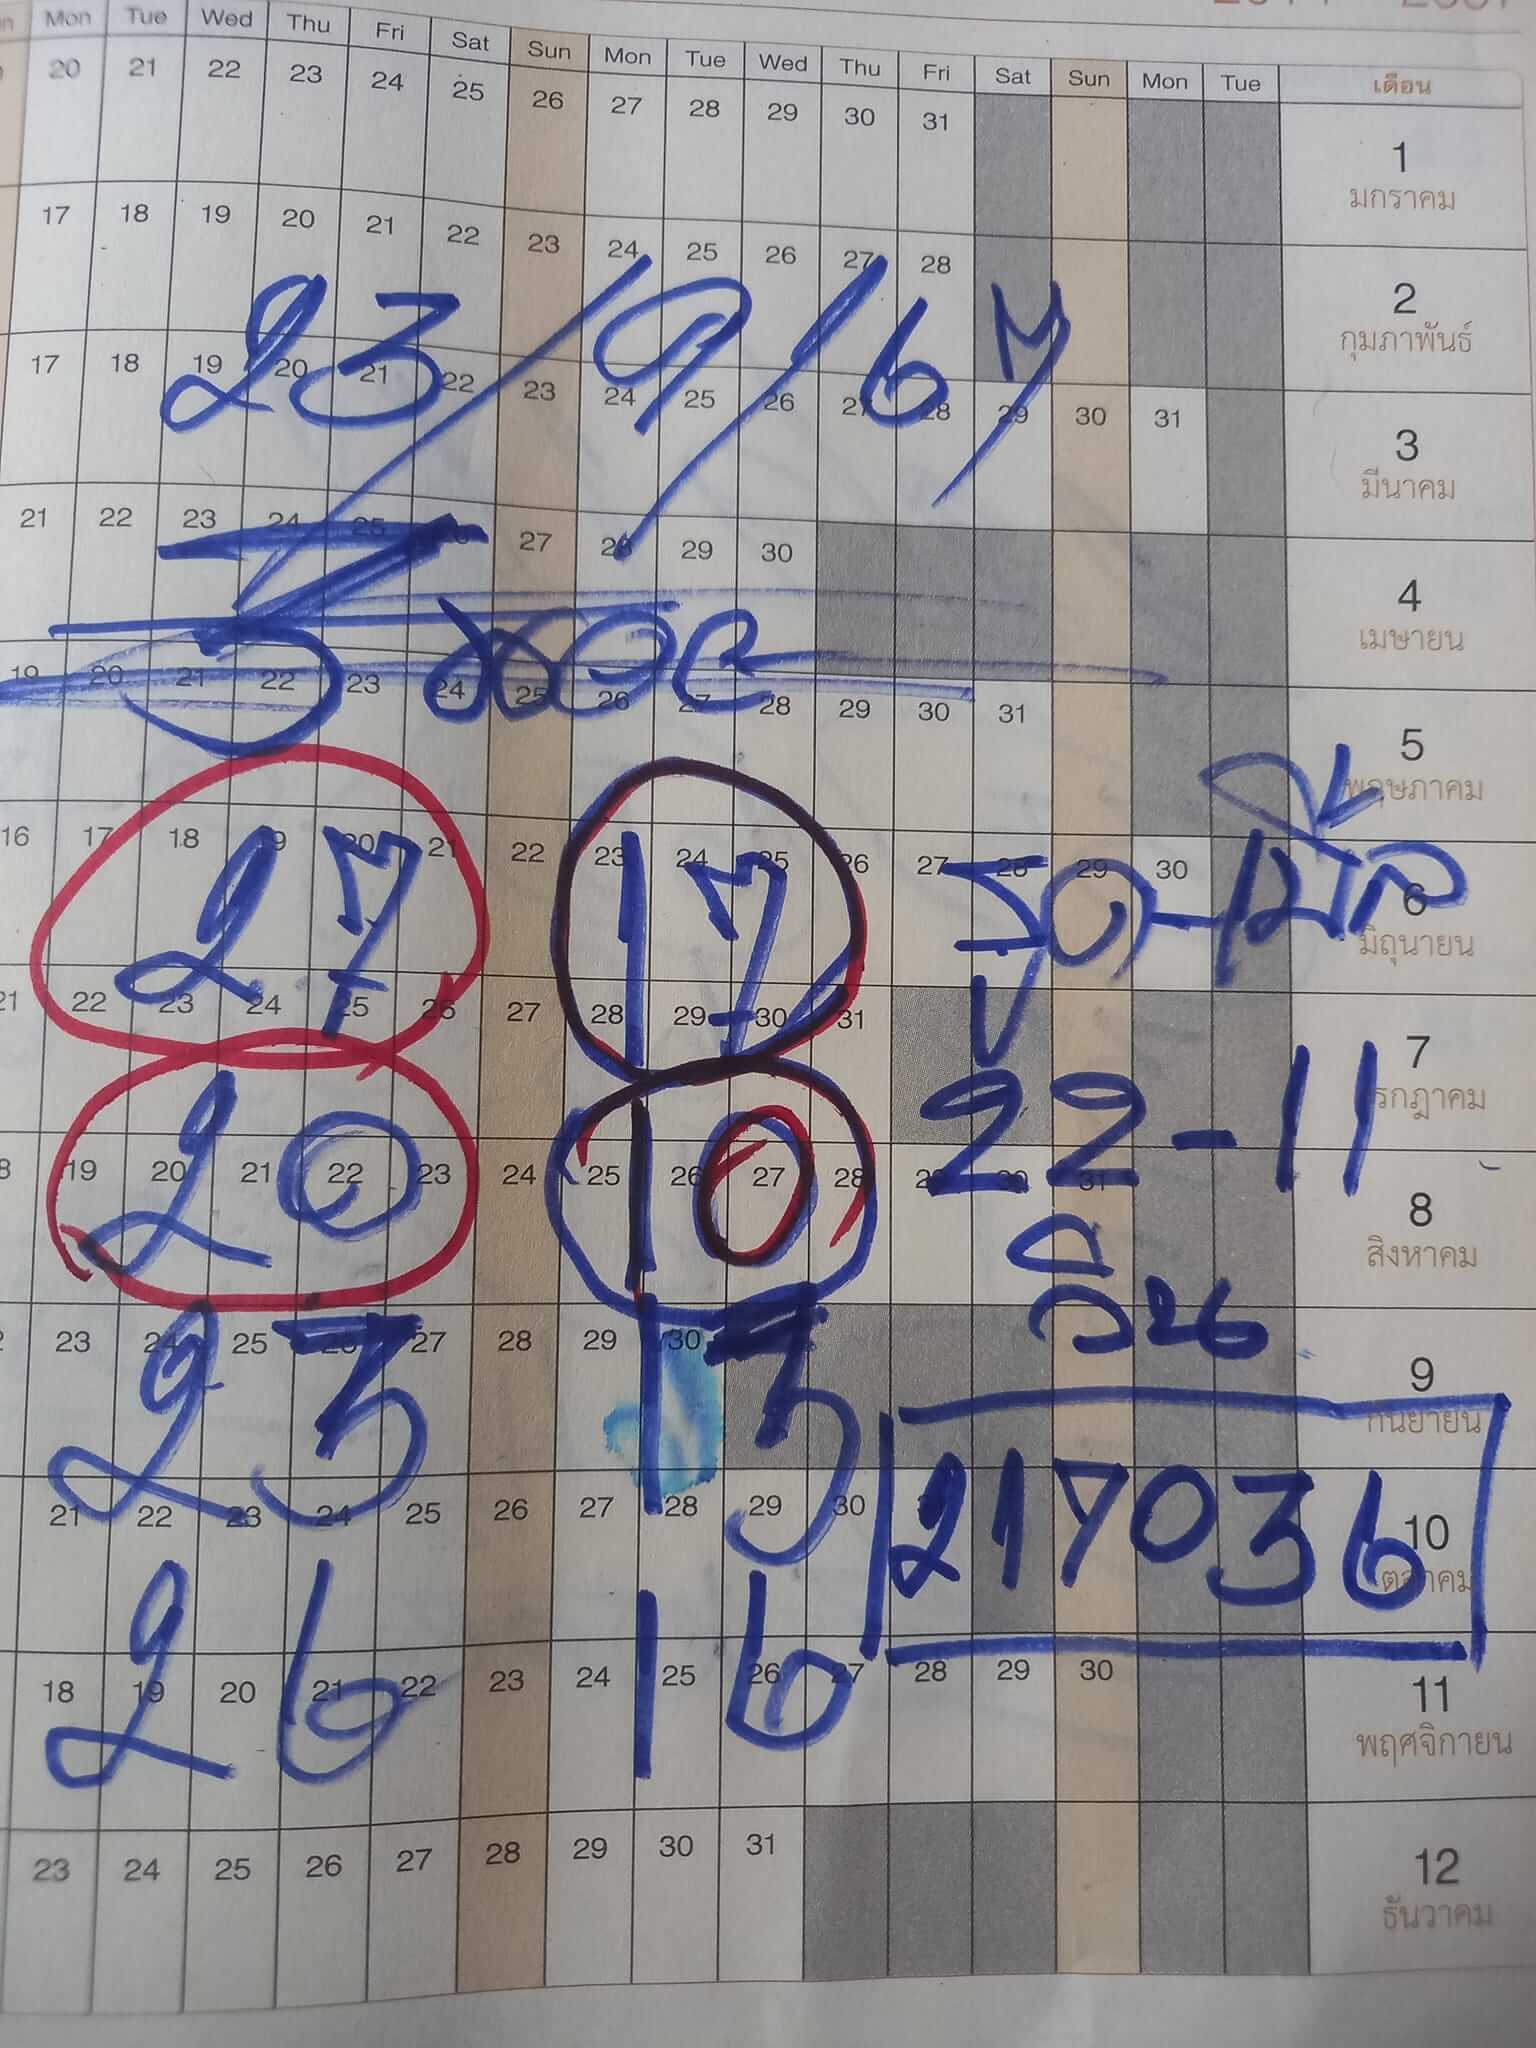 Mon Tue Wed Thu Fri Sat Sun Mon Tue Wed Thu Fri Sat Sun Mon Tue เดือน
20 21 22 23 24 25 26 27 28 29 30 31 1
มกราคม
17 18 19 20 21 22 23 24 25 26 27 28 2
กุมภาพันธ์
23/9/67
17 18 19 20 21 22 23 24 25 26 27 28 29 30 31 3
มีนาคม
21 22 23 24 25 26 27 28 29 30 4
เมษายน
19 20 21 22 23 24 25 26 27 28 29 30 31 5
พฤษภาคม
16 17 18 19 20 21 22 23 24 25 26 27 28 29 30 6
มิถุนายน
27 17
21 22 23 24 25 26 27 28 29 30 31 7
กรกฎาคม
20 10 22-11
18 19 20 21 22 23 24 25 26 27 28 29 30 31 8
สิงหาคม
23 24 25 26 27 28 29 30 9
กันยายน
23 13
217036
21 22 23 24 25 26 27 28 29 30 10
ตุลาคม
26 16
18 19 20 21 22 23 24 25 26 27 28 29 30 11
พฤศจิกายน
23 24 25 26 27 28 29 30 31 12
ธันวาคม